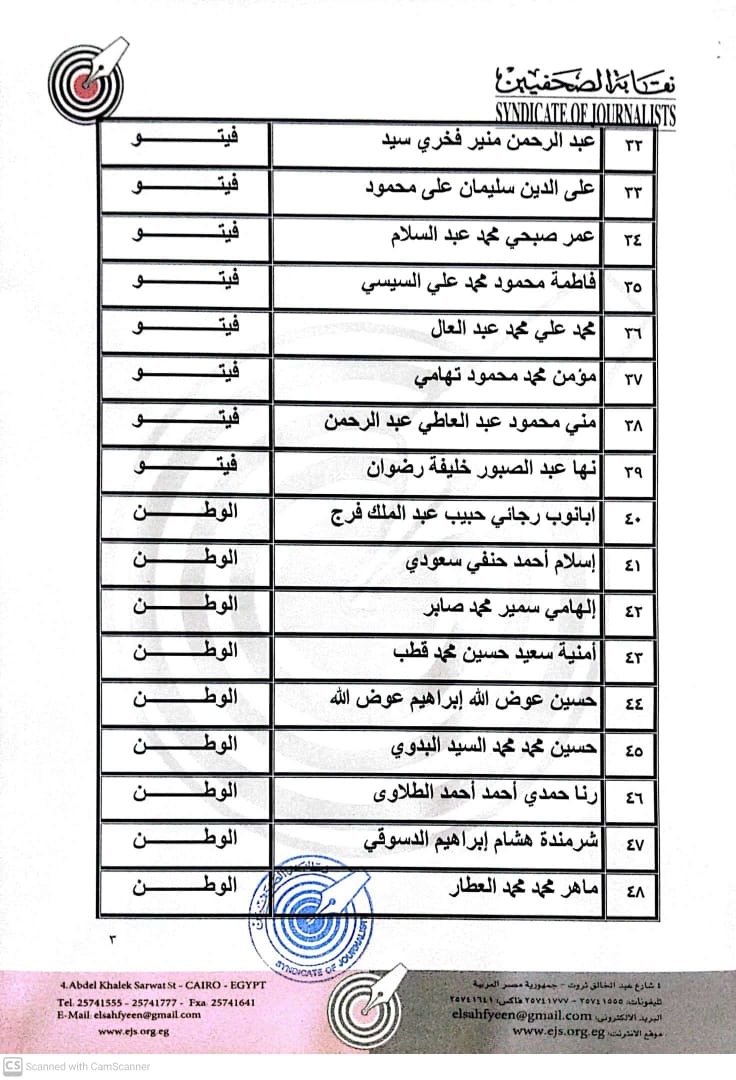 نقابة الصحفيين
SYNDICATE OF JOURNALISTS
٣٢ عبد الرحمن منير فخري سيد فيتـــــــو
٣٣ على الدين سليمان على محمود فيتـــــــو
٣٤ عمر صبحي محمد عبد السلام فيتـــــــو
٣٥ فاطمة محمود محمد علي السيسي فيتـــــــو
٣٦ محمد علي محمد عبد العال فيتـــــــو
٣٧ مؤمن محمد محمود تهامي فيتـــــــو
٣٨ مني محمود عبد العاطي عبد الرحمن فيتـــــــو
٣٩ نها عبد الصبور خليفة رضوان فيتـــــــو
٤٠ ابانوب رجائي حبيب عبد الملك فرج الوطـــــــن
٤١ إسلام أحمد حنفي سعودي الوطـــــــن
٤٢ إلهامي سمير محمد صابر الوطـــــــن
٤٣ أمنية سعيد حسين محمد قطب الوطـــــــن
٤٤ حسين عوض الله إبراهيم عوض الله الوطـــــــن
٤٥ حسين محمد محمد السيد البدوي الوطـــــــن
٤٦ رنا حمدي أحمد أحمد الطلاوى الوطـــــــن
٤٧ شرمندة هشام إبراهيم الدسوقي الوطـــــــن
٤٨ ماهر محمد محمد العطار الوطـــــــن
نقابة الصحفيين
SYNDICATE OF JOURNALIST
٣
4.Abdel Khalek Sarwat St - CAIRO - EGYPT
Tel. 25741555 - 25741777 - Fxa 25741641
E-Mail: elsahfyeen@gmail.com
www.ejs.org.eg
٤ شارع عبد الخالق ثروت - جمهورية مصر العربية
تليفونات: ٢٥٧٤١٥٥٥ - ٢٥٧٤١٧٧٧ فاكس: ٢٥٧٤١٦٤١
البريد الالكترونى: elsahfyeen@gmail.com
موقع الانترنت: www.ejs.org.eg
CS Scanned with CamScanner